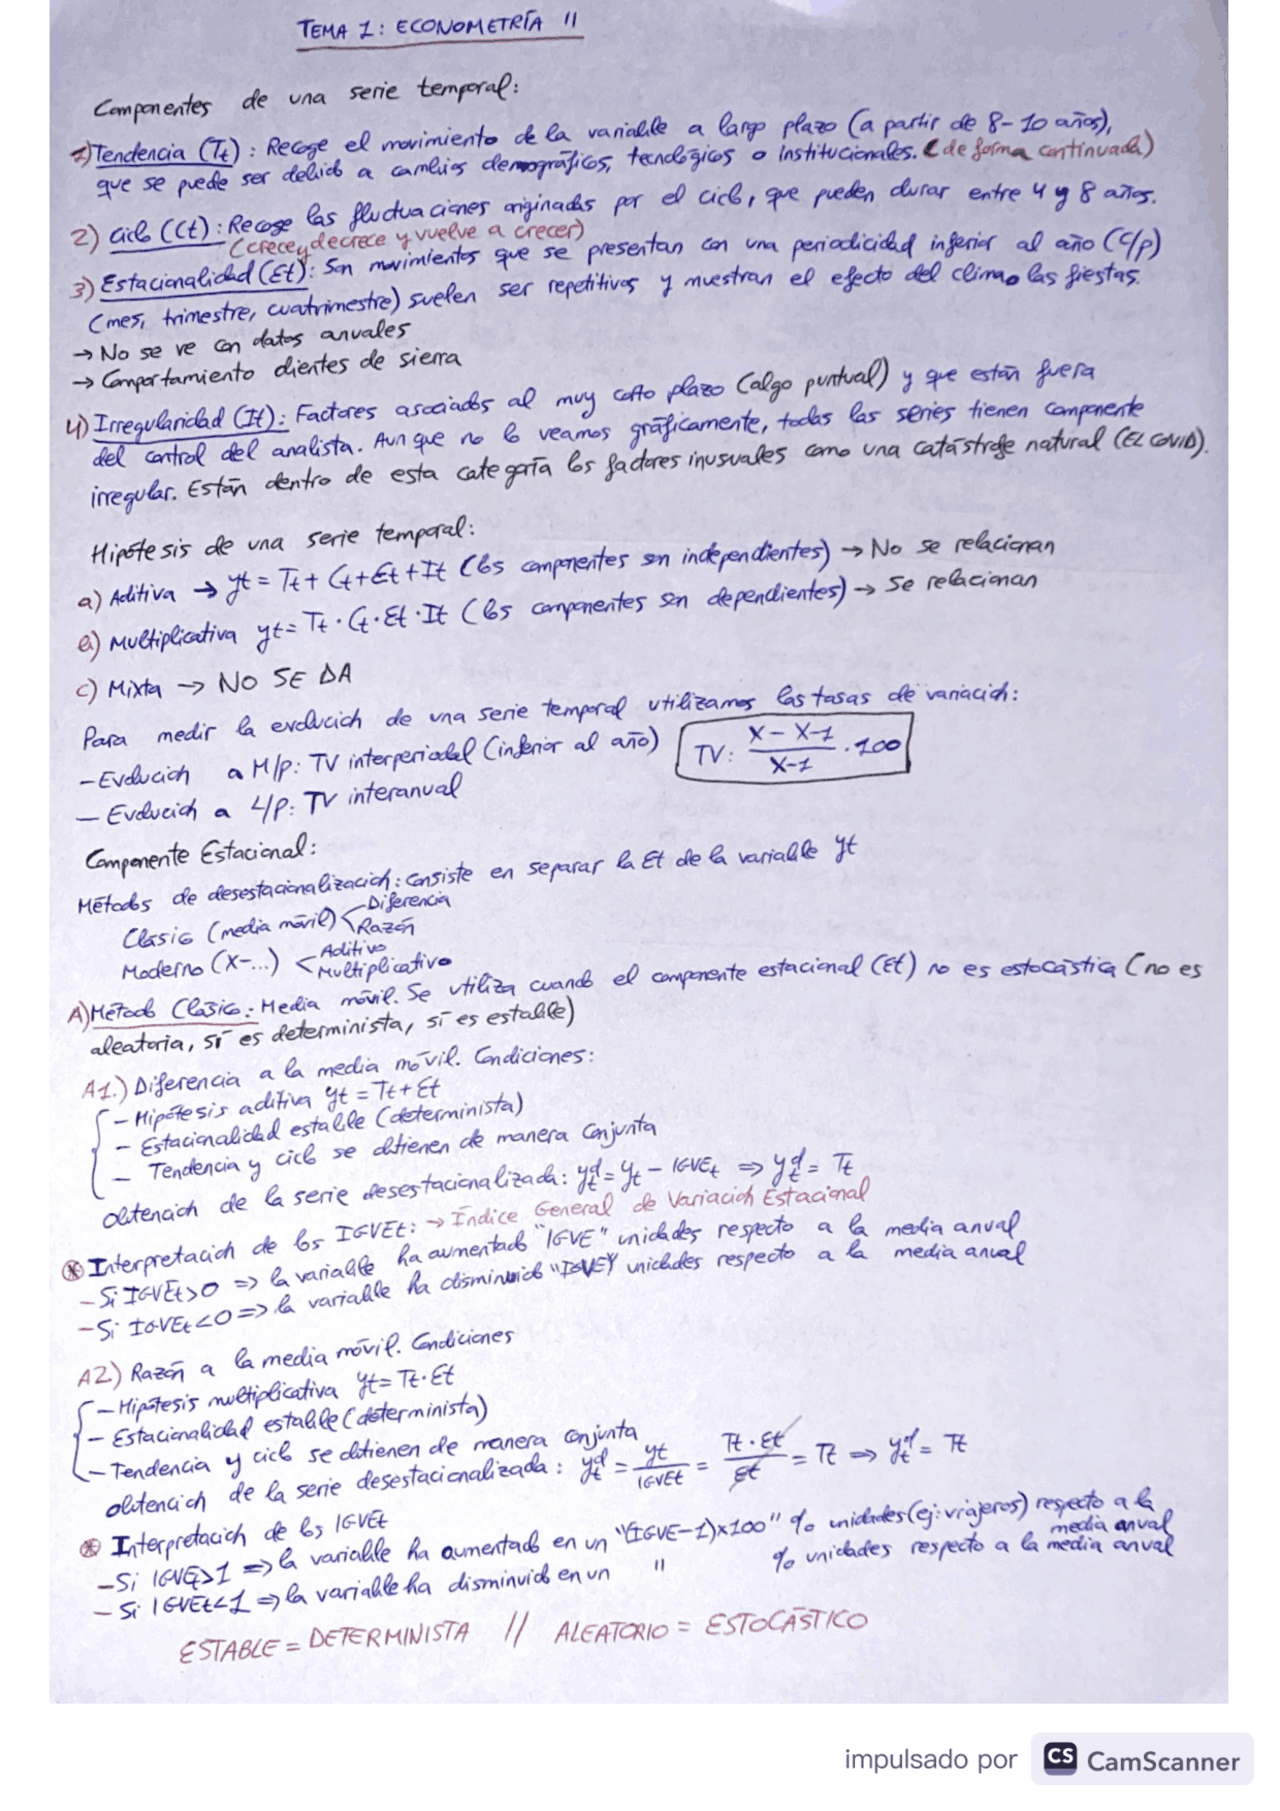 TEMA 1: ECONOMETRÍA II
Componentes de una serie temporal:
1) Tendencia (Tt): Recoge el movimiento de la variable a largo plazo (a partir de 8-10 años),
que se puede ser debido a cambios demográficos, tecnológicos o Institucionales. (de forma continuada)
2) Ciclo (Ct): Recoge las fluctuaciones originadas por el ciclo, que pueden durar entre 4 y 8 años.
(crece y decrece y vuelve a crecer)
3) Estacionalidad (Et): Son movimientos que se presentan con una periodicidad inferior al año (C/p)
(mes, trimestre, cuatrimestre) suelen ser repetitivos y muestran el efecto del clima o las fiestas.
→ No se ve con datos anuales
→ Comportamiento dientes de sierra
4) Irregularidad (It): Factores asociados al muy corto plazo (algo puntual) y que están fuera
del control del analista. Aunque no lo veamos gráficamente, todas las series tienen componente
irregular. Están dentro de esta categoría los factores inusuales como una catástrofe natural (EL COVID).
Hipótesis de una serie temporal:
a) Aditiva → yt = Tt + Ct + Et + It (los componentes son independientes) → No se relacionan
b) Multiplicativa yt = Tt · Ct · Et · It (los componentes son dependientes) → Se relacionan
c) Mixta → NO SE DA
Para medir la evolución de una serie temporal utilizamos las tasas de variación:
- Evolución a M/p: TV interperiodal (inferior al año) TV: X - X-1 / X-1 · 100
- Evolución a L/p: TV interanual
Componente Estacional:
Métodos de desestacionalización: Consiste en separar la Et de la variable yt
Clásico (media móvil) < Diferencia
Razón
Moderno (X-...) < Aditivo
Multiplicativo
A) Método Clásico: Media móvil. Se utiliza cuando el componente estacional (Et) no es estocástica (no es
aleatoria, sí es determinista, sí es estable)
A1.) Diferencia a la media móvil. Condiciones:
- Hipótesis aditiva yt = Tt + Et
- Estacionalidad estable (determinista)
- Tendencia y ciclo se obtienen de manera conjunta
Obtención de la serie desestacionalizada: ydt = yt - IGVEt ⇒ ydt = Tt
* Interpretación de los IGVEt: → Índice General de Variación Estacional
- Si IGVEt>0 ⇒ la variable ha aumentado "IGVE" unidades respecto a la media anual
- Si IGVEt<0 ⇒ la variable ha disminuido "IGVE" unidades respecto a la media anual
A2) Razón a la media móvil. Condiciones
- Hipótesis multiplicativa yt = Tt·Et
- Estacionalidad estable (determinista)
- Tendencia y ciclo se obtienen de manera conjunta
obtención de la serie desestacionalizada: ydt = yt / IGVEt = Tt · Et / Et = Tt ⇒ ydt = Tt
* Interpretación de los IGVEt
- Si IGVEt>1 ⇒ la variable ha aumentado en un "(IGVE-1)x100" % unidades (ej: viajeros) respecto a la media anual
- Si IGVEt<1 ⇒ la variable ha disminuido en un " % unidades respecto a la media anual
ESTABLE = DETERMINISTA // ALEATORIO = ESTOCÁSTICO
impulsado por CS CamScanner